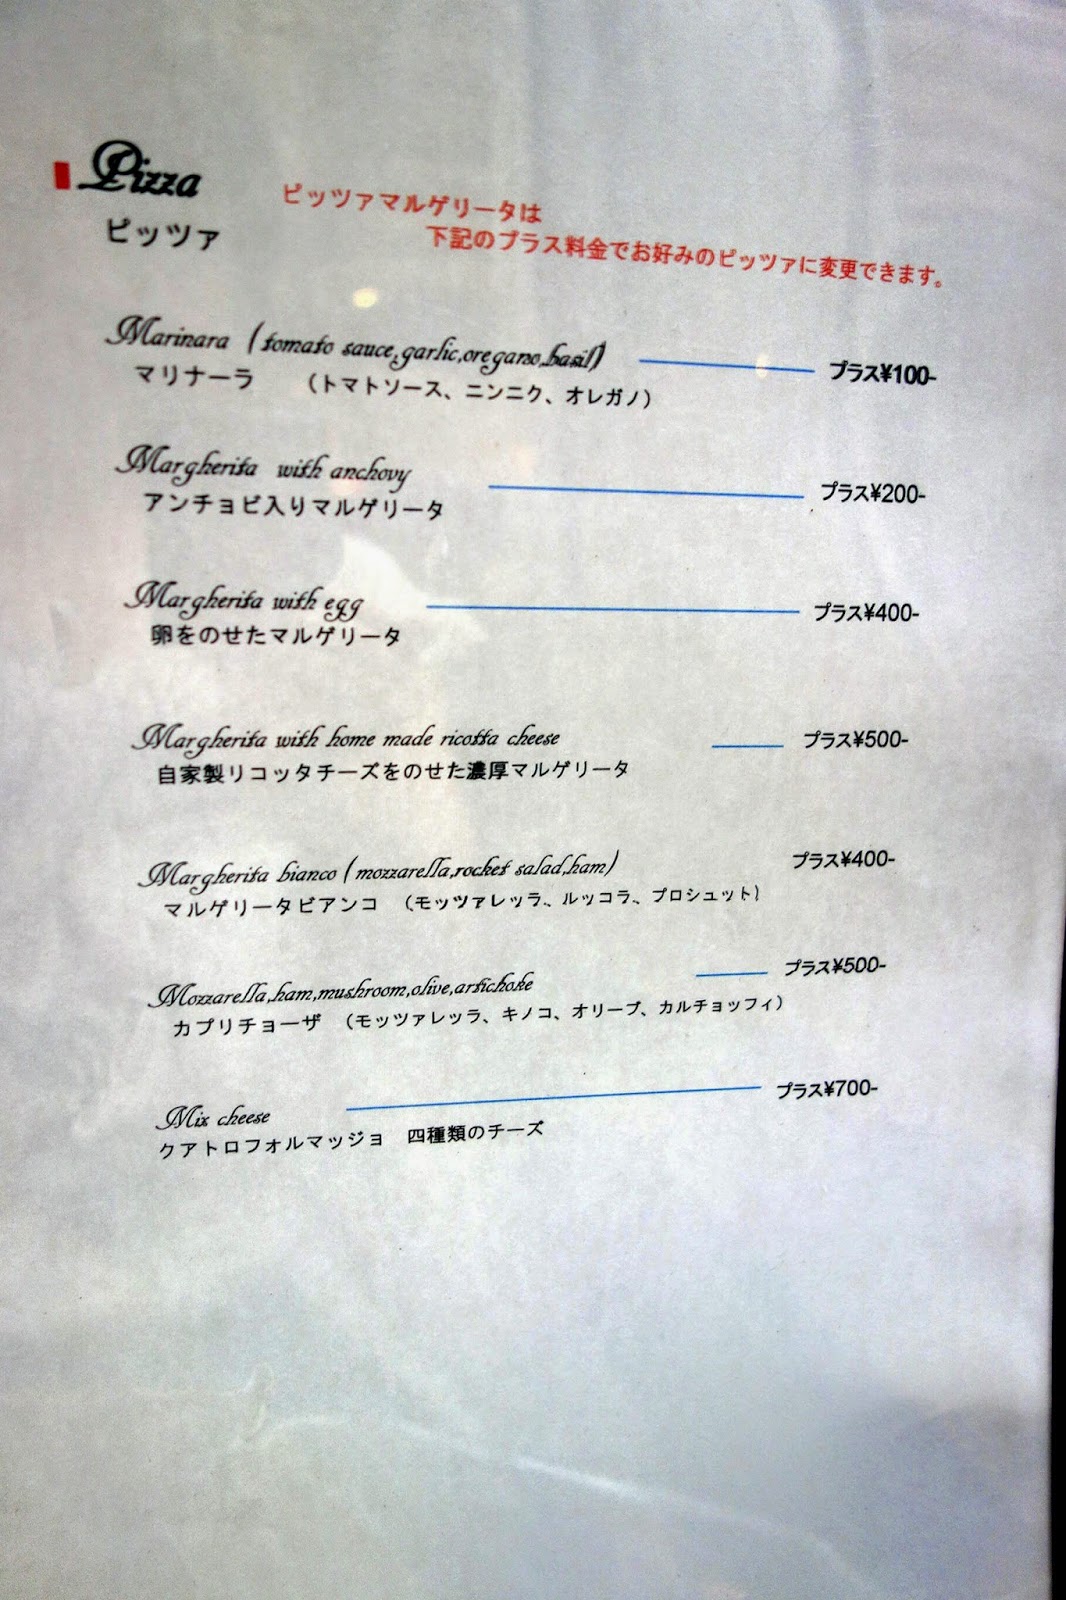 Pizza
ピッツァ
ピッツァマルゲリータは
下記のプラス料金でお好みのピッツァに変更できます。
Marinara (tomato sauce,garlic,oregano,basil) プラス¥100-
マリナーラ （トマトソース、ニンニク、オレガノ）
Margherita with anchovy プラス¥200-
アンチョビ入りマルゲリータ
Margherita with egg プラス¥400-
卵をのせたマルゲリータ
Margherita with home made ricotta cheese プラス¥500-
自家製リコッタチーズをのせた濃厚マルゲリータ
Margherita bianco (mozzarella,rocket salad,ham) プラス¥400-
マルゲリータビアンコ （モッツァレッラ、ルッコラ、プロシュット）
Mozzarella,ham,mushroom,olive,artichoke プラス¥500-
カプリチョーザ （モッツァレッラ、キノコ、オリーブ、カルチョッフィ）
Mix cheese プラス¥700-
クアトロフォルマッジョ 四種類のチーズ